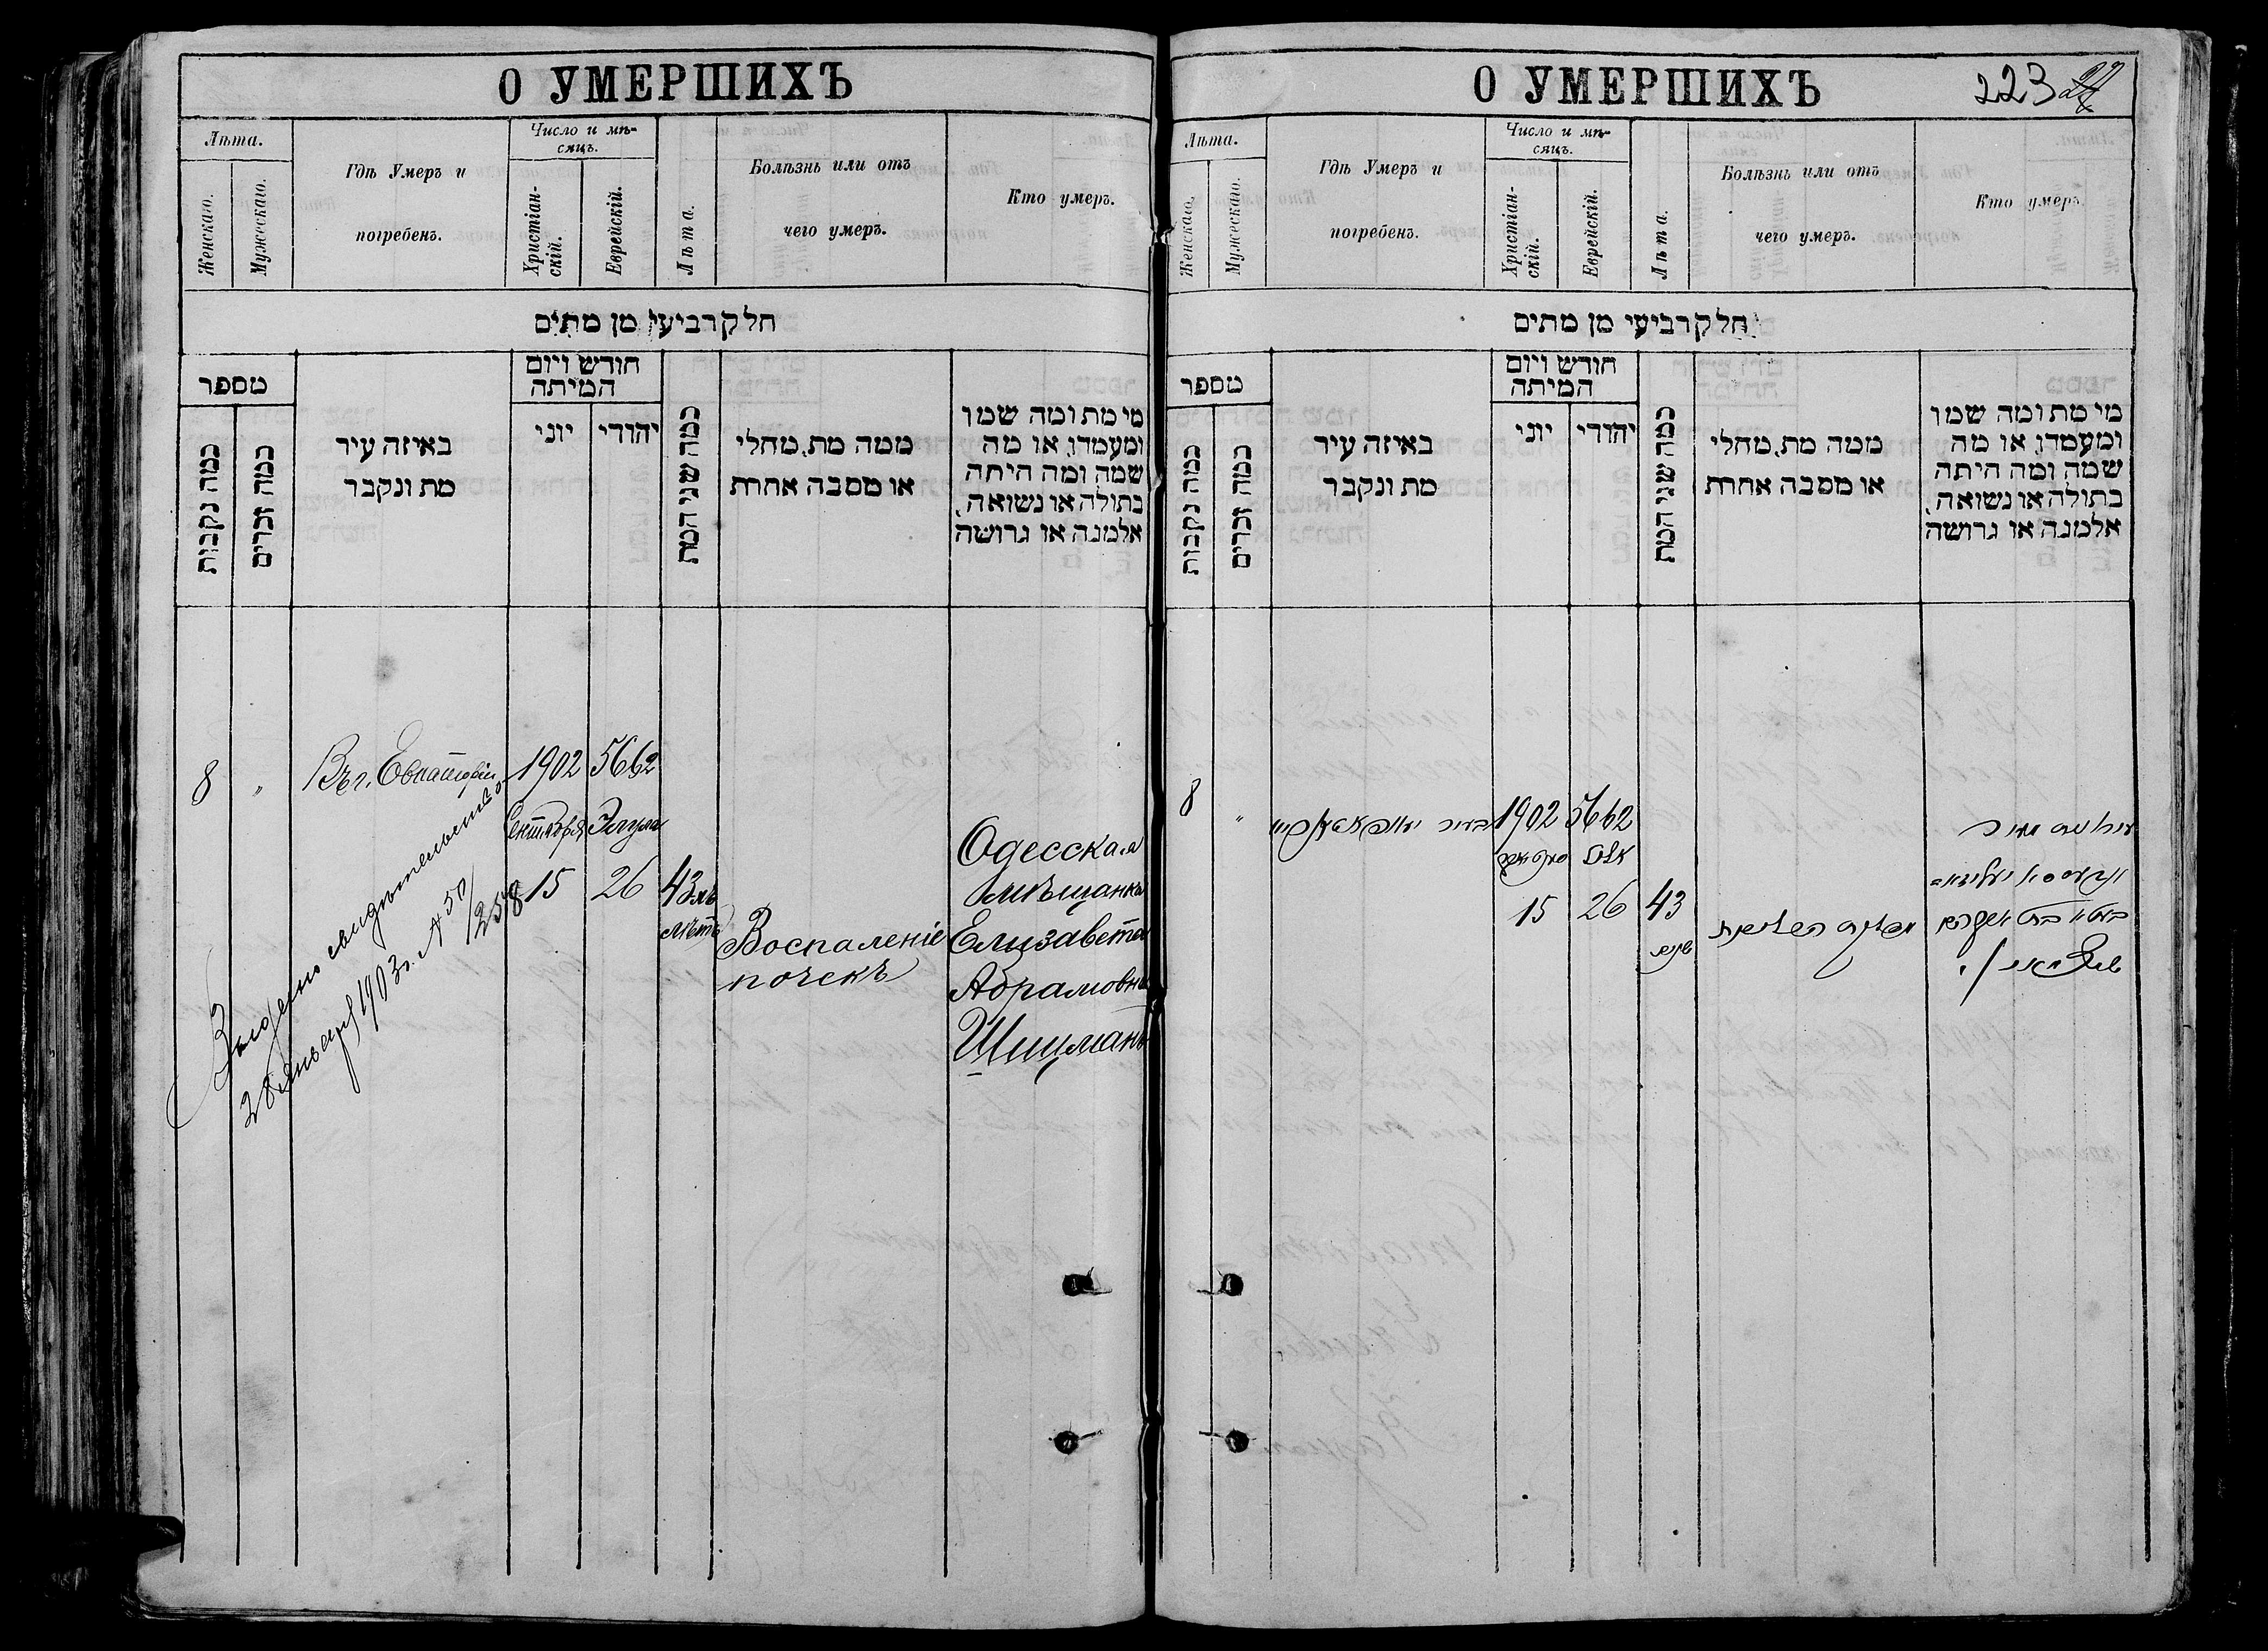 О УМЕРШИХЪ
Лѣта.
Женскаго.
Мужескаго.
Гдѣ Умеръ и
погребенъ.
Число и мѣ-
сяцъ.
Христіан-
скій.
Еврейскій.
Лѣта.
Болѣзнь или отъ
чего умеръ.
Кто умеръ.
חלק רביעי מן מתים
מספר
כמה נקבות
כמה זכרים
באיזה עיר
מת ונקבר
חודש ויום
המיתה
יוני
יהודי
כמה שני המת
ממה מת, מחלי
או מסבה אחרת
מי מת ומה שמו
ומעמדו, או מה
שמה ומה היתה
בתולה או נשואה,
אלמנה או גרושה
8
"
Въ г. Евпаторіи
1902
Сентября
15
5662
Элула
26
43хъ
лѣтъ
Воспаленіе
почекъ
Одесская
мѣщанка
Елизавета
Абрамовна
Шишманъ
Выдено свидѣтельство
28 января 1903 г. №
О УМЕРШИХЪ
223
Лѣта.
Женскаго.
Мужескаго.
Гдѣ Умеръ и
погребенъ.
Число и мѣ-
сяцъ.
Христіан-
скій.
Еврейскій.
Лѣта.
Болѣзнь или отъ
чего умеръ.
Кто умеръ.
חלק רביעי מן מתים
מספר
כמה נקבות
כמה זכרים
באיזה עיר
מת ונקבר
חודש ויום
המיתה
יוני
יהודי
כמה שני המת
ממה מת, מחלי
או מסבה אחרת
מי מת ומה שמו
ומעמדו, או מה
שמה ומה היתה
בתולה או נשואה,
אלמנה או גרושה
8
"
בעיר
1902
15
5662
אלול
26
43